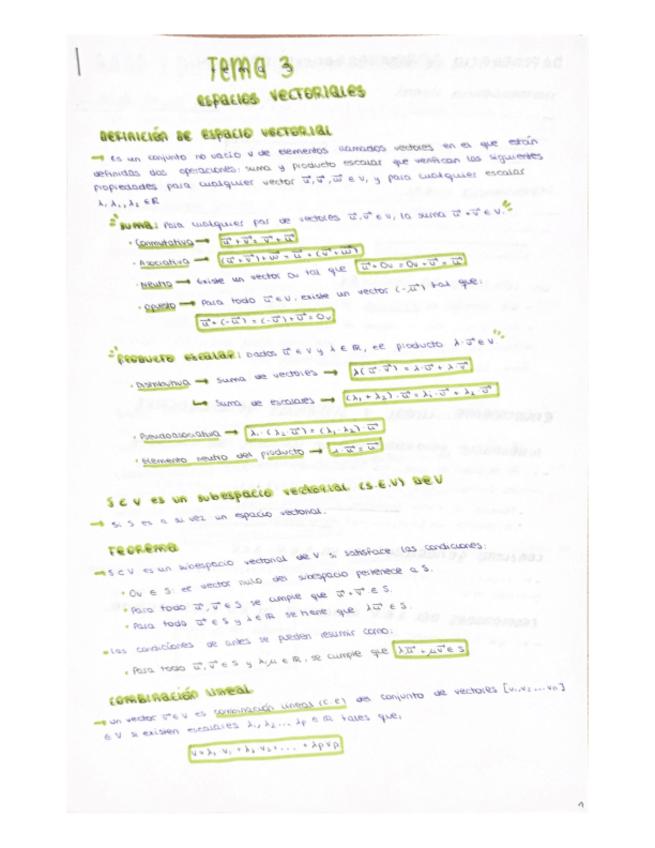 Tema 3
ESPACIOS VECTORIALES
DEFINICIÓN DE ESPACIO VECTORIAL
→ Es un conjunto no vacío V de elementos llamados vectores en el que están
definidas dos operaciones: suma y producto escalar que verifican las siguientes
propiedades para cualquier vector u⃗, v⃗, w⃗ ∈ V, y para cualquier escalar
λ, λ₁, λ₂ ∈ ℝ
SUMA: Para cualquier par de vectores u⃗, v⃗ ∈ V, la suma u⃗ + v⃗ ∈ V.
· Conmutativa → u⃗ + v⃗ = v⃗ + u⃗
· Asociativa → (u⃗ + v⃗) + w⃗ = u⃗ + (v⃗ + w⃗)
· Neutro → Existe un vector 0v tal que u⃗ + 0v = 0v + u⃗ = u⃗
· Opuesto → Para todo u⃗ ∈ V, existe un vector (-u⃗) tal que:
u⃗ + (-u⃗) = (-u⃗) + u⃗ = 0v
PRODUCTO ESCALAR: Dados u⃗ ∈ V y λ ∈ ℝ, el producto λ · u⃗ ∈ V
· Distributiva → Suma de vectores →
↳ Suma de escalares →
· Pseudoasociativa → λ₁ · (λ₂ · u⃗) = (λ₁ · λ₂) · u⃗
· Elemento neutro del producto →
S ⊂ V ES UN SUBESPACIO VECTORIAL (S.E.V) DE V
→ Si S es a su vez un espacio vectorial.
TEOREMA
→ S ⊂ V es un subespacio vectorial de V si satisface las condiciones:
· 0v ∈ S: el vector nulo del subespacio pertenece a S.
· Para todo u⃗, v⃗ ∈ S se cumple que u⃗ + v⃗ ∈ S.
· Para todo u⃗ ∈ S y λ ∈ ℝ se tiene que λu⃗ ∈ S.
· Las condiciones de antes se pueden resumir como:
· Para todo u⃗, v⃗ ∈ S y λ, μ ∈ ℝ, se cumple que λu⃗ + μv⃗ ∈ S
COMBINACIÓN LINEAL
→ un vector v⃗ ∈ V es combinación lineal del conjunto de vectores [v₁, v₂ ... vn]
∈ V si existen escalares λ₁, λ₂ ... λp ∈ ℝ tales que,
v = λ₁ v₁ + λ₂ v₂ + ... + λp vp
1